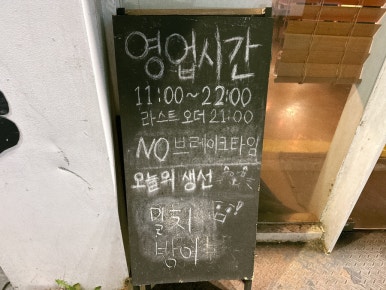 영업시간
11:00~22:00
라스트 오더 21:00
NO 브레이크타임
오늘의 생선
멸치
방어